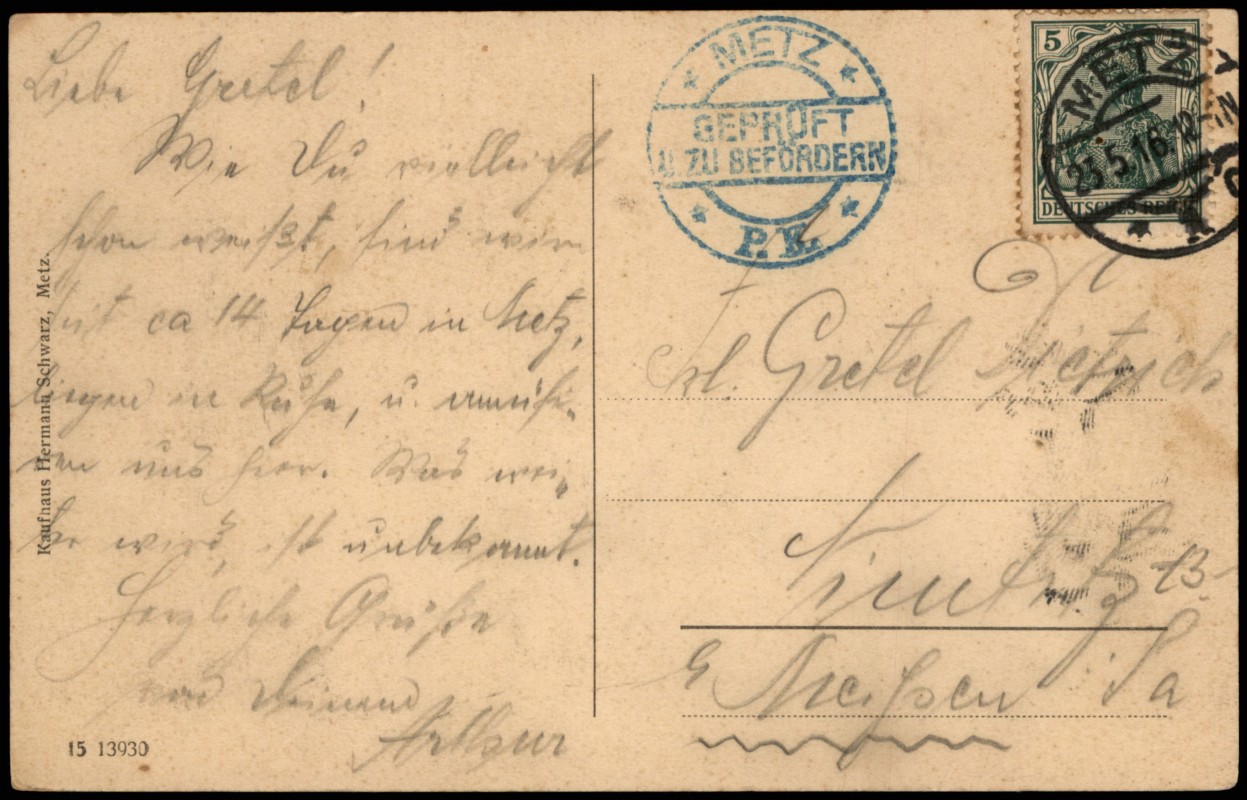 Liebe Gretel!
Wie Du vielleicht
schon weißt, sind wir
seit ca 14 Tagen in Metz,
liegen in Ruhe, u. amüsie-
ren uns hier. Was wei-
ter wird, ist unbekannt.
Herzliche Grüße
von Deinem
Arthur
Kaufhaus Hermann Schwarz, Metz.
15 13930
METZ
GEPRÜFT
U. ZU BEFÖRDERN
P.K.
5
DEUTSCHES REICH
METZ
23.5.16.12-1N
Frl. Gretel
b. Meißen i. Sa